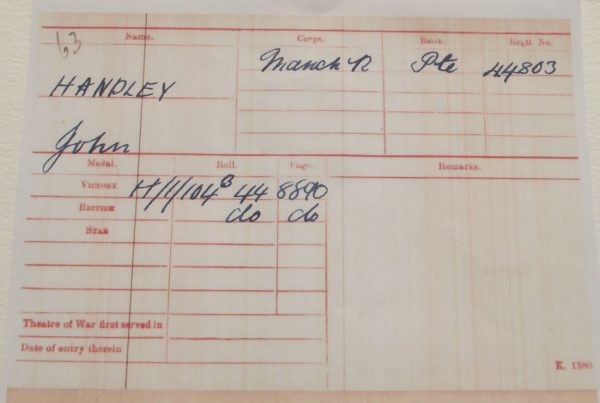 63
Name. Corps. Rank. Regtl. No.
HANDLEY Manch R Pte 44803
John
Medal. Roll. Page. Remarks.
VICTORY H/1/104 B 44 8890
BRITISH do do
STAR
Theatre of War first served in
Date of entry therein
K. 1380